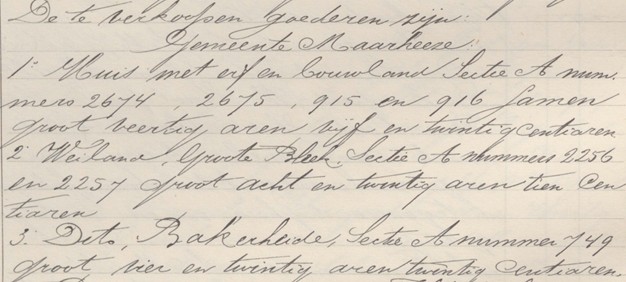 De te verkoopen goederen zijn:
Gemeente Maarheeze:
1º Huis met erf en bouwland Sectie A num-
mers 2674, 2675, 915 en 916 samen
groot veertig aren vijf en twintig centiaren
2º Weiland, Groote Bleek, Sectie A nummers 2256
en 2257 groot acht en twintig aren tien cen
tiaren
3. Dito, Bakerheide, Sectie A nummer 749
groot vier en twintig aren twintig centiaren.